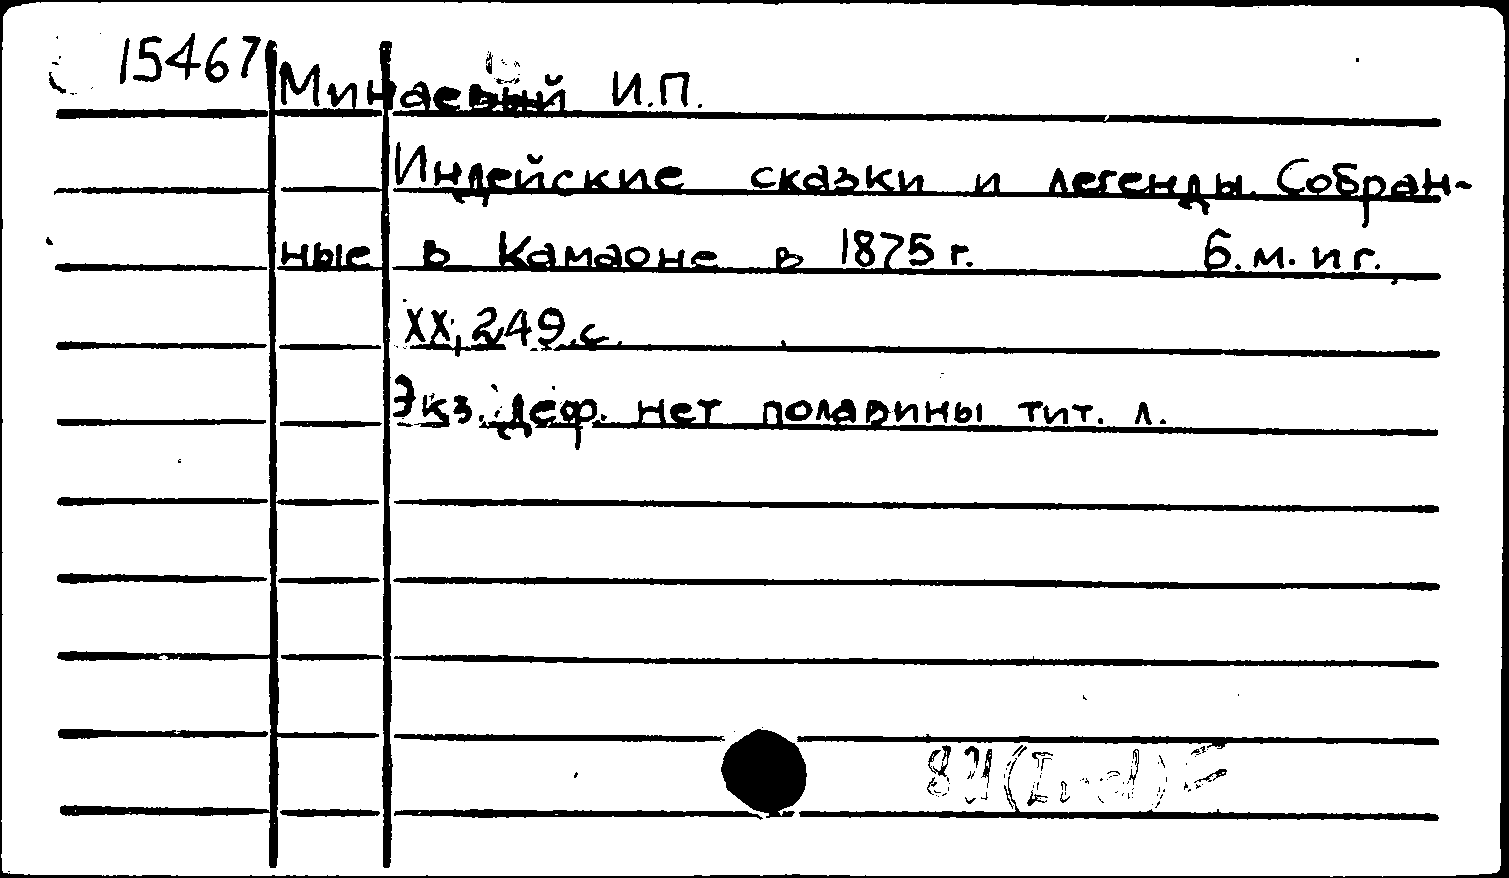 15467 Минаев И.П.
Индейские сказки и легенды. Собран-
ные в Камаоне в 1875 г. б.м. и г.
XX, 249.с.
Экз. деф. нет полавины тит. л.